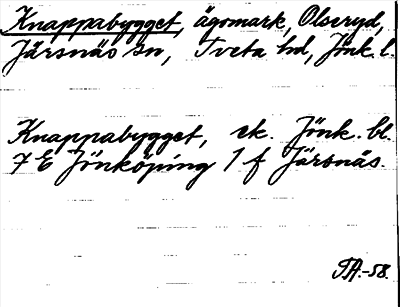 Knappabygget, ägomark, Olseryd,
Järsnäs sn, Tveta hd, Jönk. l.
Knappabygget, ek. Jönk. bl.
7 E Jönköping 1 f Järsnäs.
TA.-58.